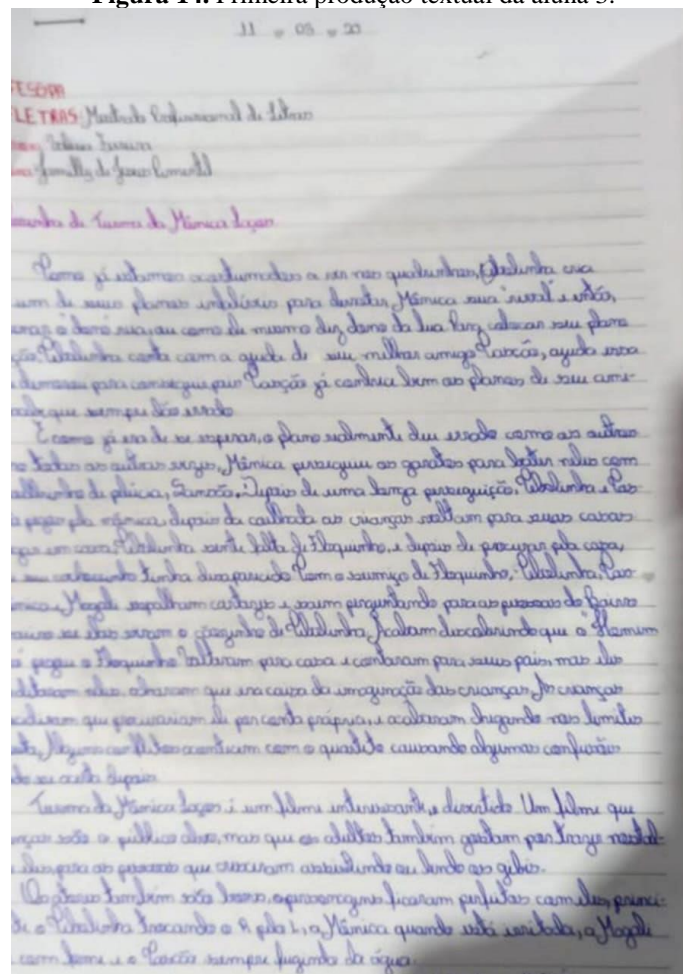 Figura 14. Primeira produção textual da aluna 3.
11 05 21
LETRAS: Mestrado Profissional de Letras
de Jesus Pimentel
de Turma da Mônica Laços
Como já estamos acostumados a ver nos quadrinhos, Cebolinha cria
um de seus planos infalíveis para derrotar Mônica sua "rival" e então,
o dono rua, ou como ele mesmo diz dono da lua. Para colocar seu plano
Cebolinha conta com a ajuda de seu melhor amigo Cascão, ajuda essa
para conseguir pois Cascão já conhece bem os planos de seu ami-
que sempre dão errado
E como já era de se esperar, o plano realmente deu errado como as outras
todas as outras vezes, Mônica perseguiu os garotos para bater neles com
de pelúcia, Sansão, Depois de uma longa perseguição, Cebolinha e Cas-
pela mônica, depois da as crianças voltam para suas casas
em casa Cebolinha sente falta de Floquinho, e depois de procurar pela casa,
seu cachorrinho tinha desaparecido Com o sumiço de Floquinho, Cebolinha, Cas-
Magali espalham cartazes e saem perguntando para as pessoas do Bairro
se elas viram o de Cebolinha, Acabam descobrindo que o "Homem
pegou o Floquinho Voltaram para casa e contaram para seus pais, mas eles
neles, acharam que era coisa da imaginação das crianças, As crianças
que procurariam ele por conta própria, e acabaram chegando nos limites
Alguns conflitos acontecem com o quarteto causando algumas confusão
depois
Turma da Mônica Laços é um filme interessante, e divertido Um filme que
são o público alvo, mas que os adultos também gostam por traze nostal-
para as pessoas que cresceram assistindo ou lendo os gibis.
Os atores também são bons, o personagens ficaram perfeitos com eles, princi-
o Cebolinha trocando o R pelo L, a Mônica quando está irritada, a Magali
com fome e o Cascão sempre fugindo da água.